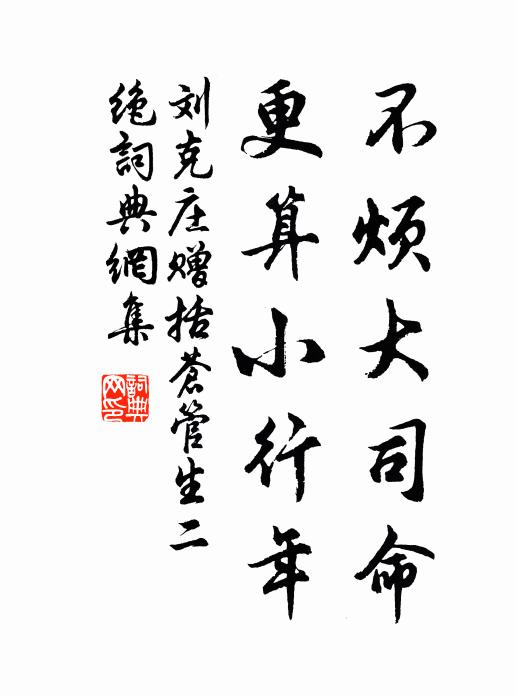 不烦大司命
更算小行年
刘克庄赠括苍管生二
绝词典網集
詞典
网印